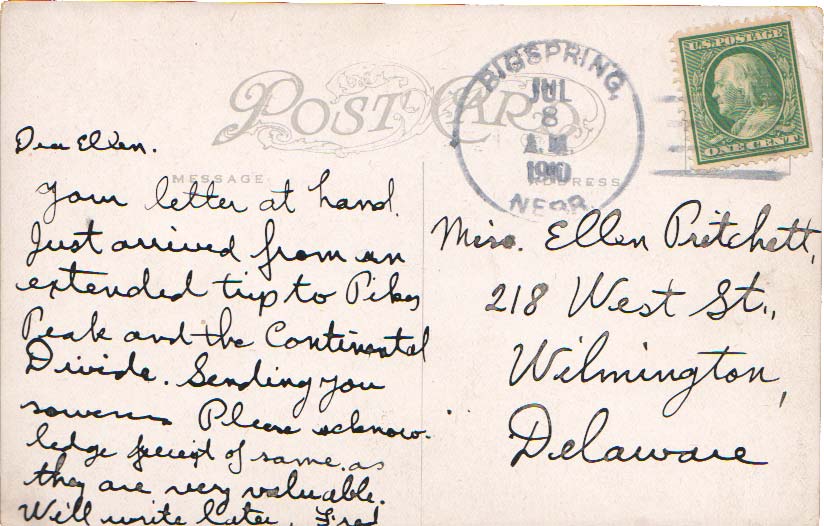 POST CARD
BIGSPRING,
JUL
8
A.M.
1910
NEBR.
U.S. POSTAGE
ONE CENT
MESSAGE
ADDRESS
Dear Ellen.
Your letter at hand.
Just arrived from an
extended trip to Pikes
Peak and the Continental
Divide. Sending you
Please acknow-
ledge of same. as
they are very valuable.
Will write later, Fred
Miss. Ellen Pritchett,
218 West St.,
Wilmington,
Delaware